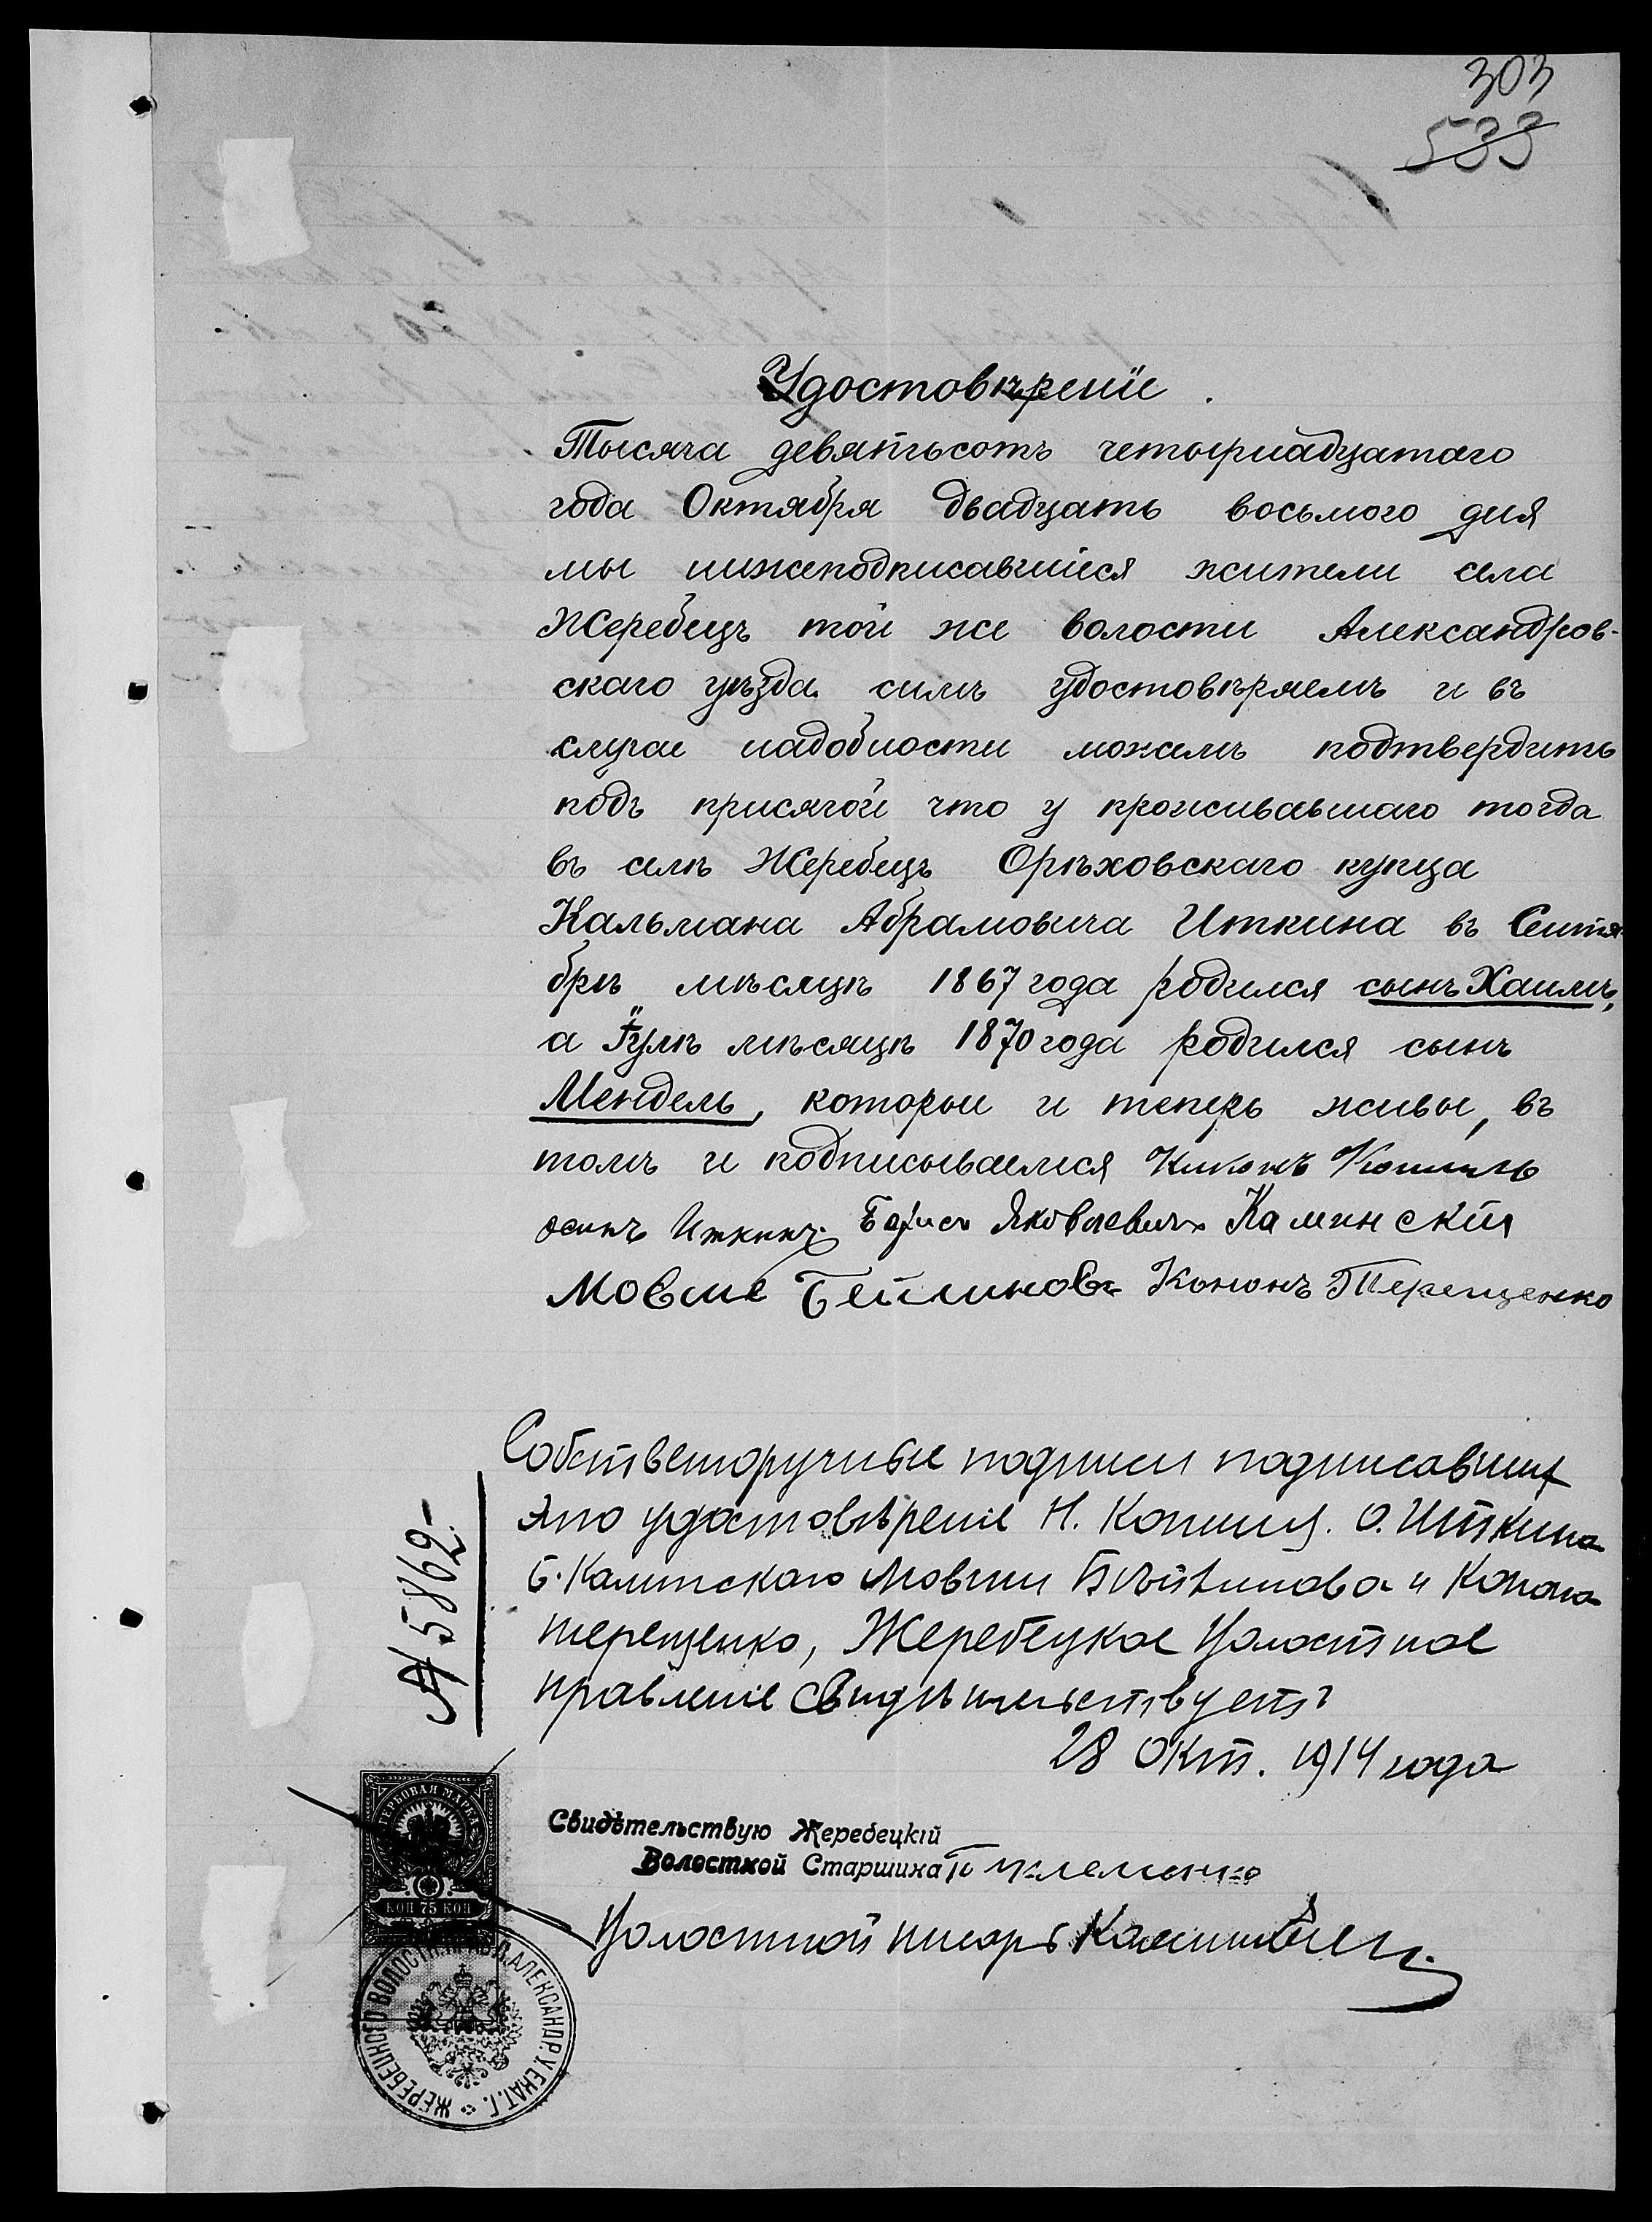 303
533
Удостовѣренiе.
Тысяча девятьсотъ четырнадцатаго
года Октября двадцать восьмого дня
мы нижеподписавшiеся жители села
Жеребецъ той же волости Александров-
скаго уѣзда симъ удостовѣряемъ и въ
случаѣ надобности можемъ подтвердить
подъ присягой что у проживавшаго тогда
въ селѣ Жеребецъ Орѣховскаго купца
Кальмана Абрамовича Иткина въ Сентя-
брѣ мѣсяцѣ 1867 года родился сынъ Хаимъ,
а Iюлѣ мѣсяцѣ 1870 года родился сынъ
Мендель, которые и теперь живы, въ
томъ и подписываемся Никонъ
Осипъ Иткинъ. Борисъ Яковлевичъ Каминскiй
Мовше Бейлиновъ Кононъ Терещенко
Собственоручные подписи подписавших
это удостовѣренiе Н. О. Иткина
Б. Каминскаго Мовши Бейлинова и Конона
Терещенко, Жеребецкое Волостное
правленiе свидѣтельствуетъ
28 Окт. 1914 года
№ 5862
ГЕРБОВАЯ МАРКА
КОП 75 КОП
Свидѣтельствую Жеребецкiй
Волостной Старшина
Волостной писарь
ЖЕРЕБЕЦКОГО ВОЛОСТН. ПРАВЛ. АЛЕКСАНДР. У. ЕКАТ. Г.